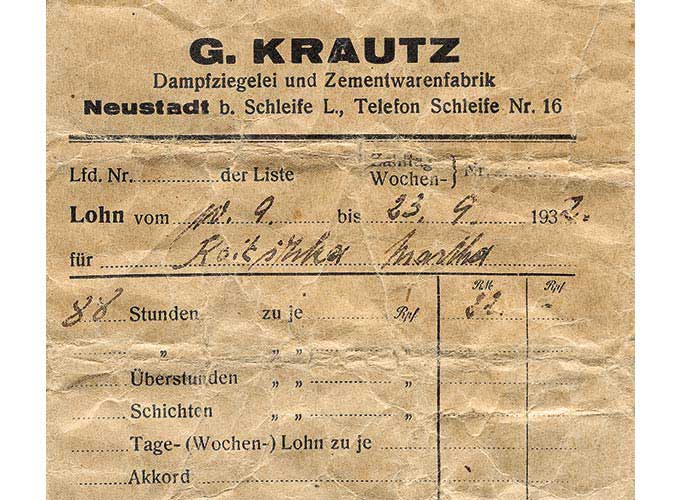 G. KRAUTZ
Dampfziegelei und Zementwarenfabrik
Neustadt b. Schleife L., Telefon Schleife Nr. 16
Lfd. Nr. der Liste Zahltag
Wochen- } Nr.
Lohn vom 10. 9. bis 23. 9. 1932.
für Martha
RM Rpf
88 Stunden zu je Rpf 22. -
„ „ „
Überstunden „ „ „
Schichten „ „ „
Tage- (Wochen-) Lohn zu je
Akkord